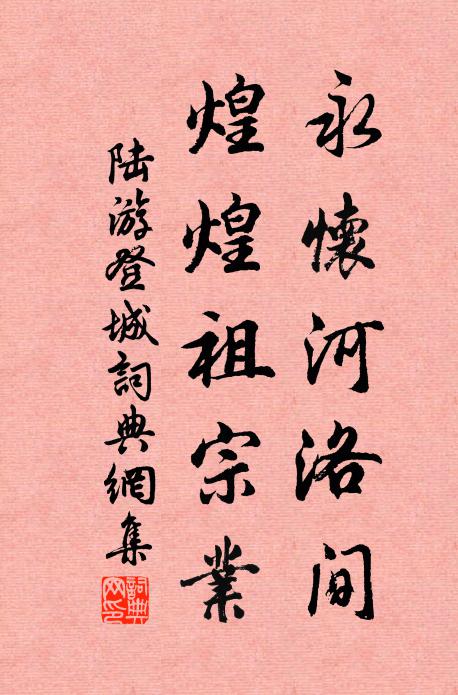 永懷河洛间
煌煌祖宗業
陆游登城詞典網集
詞典网印